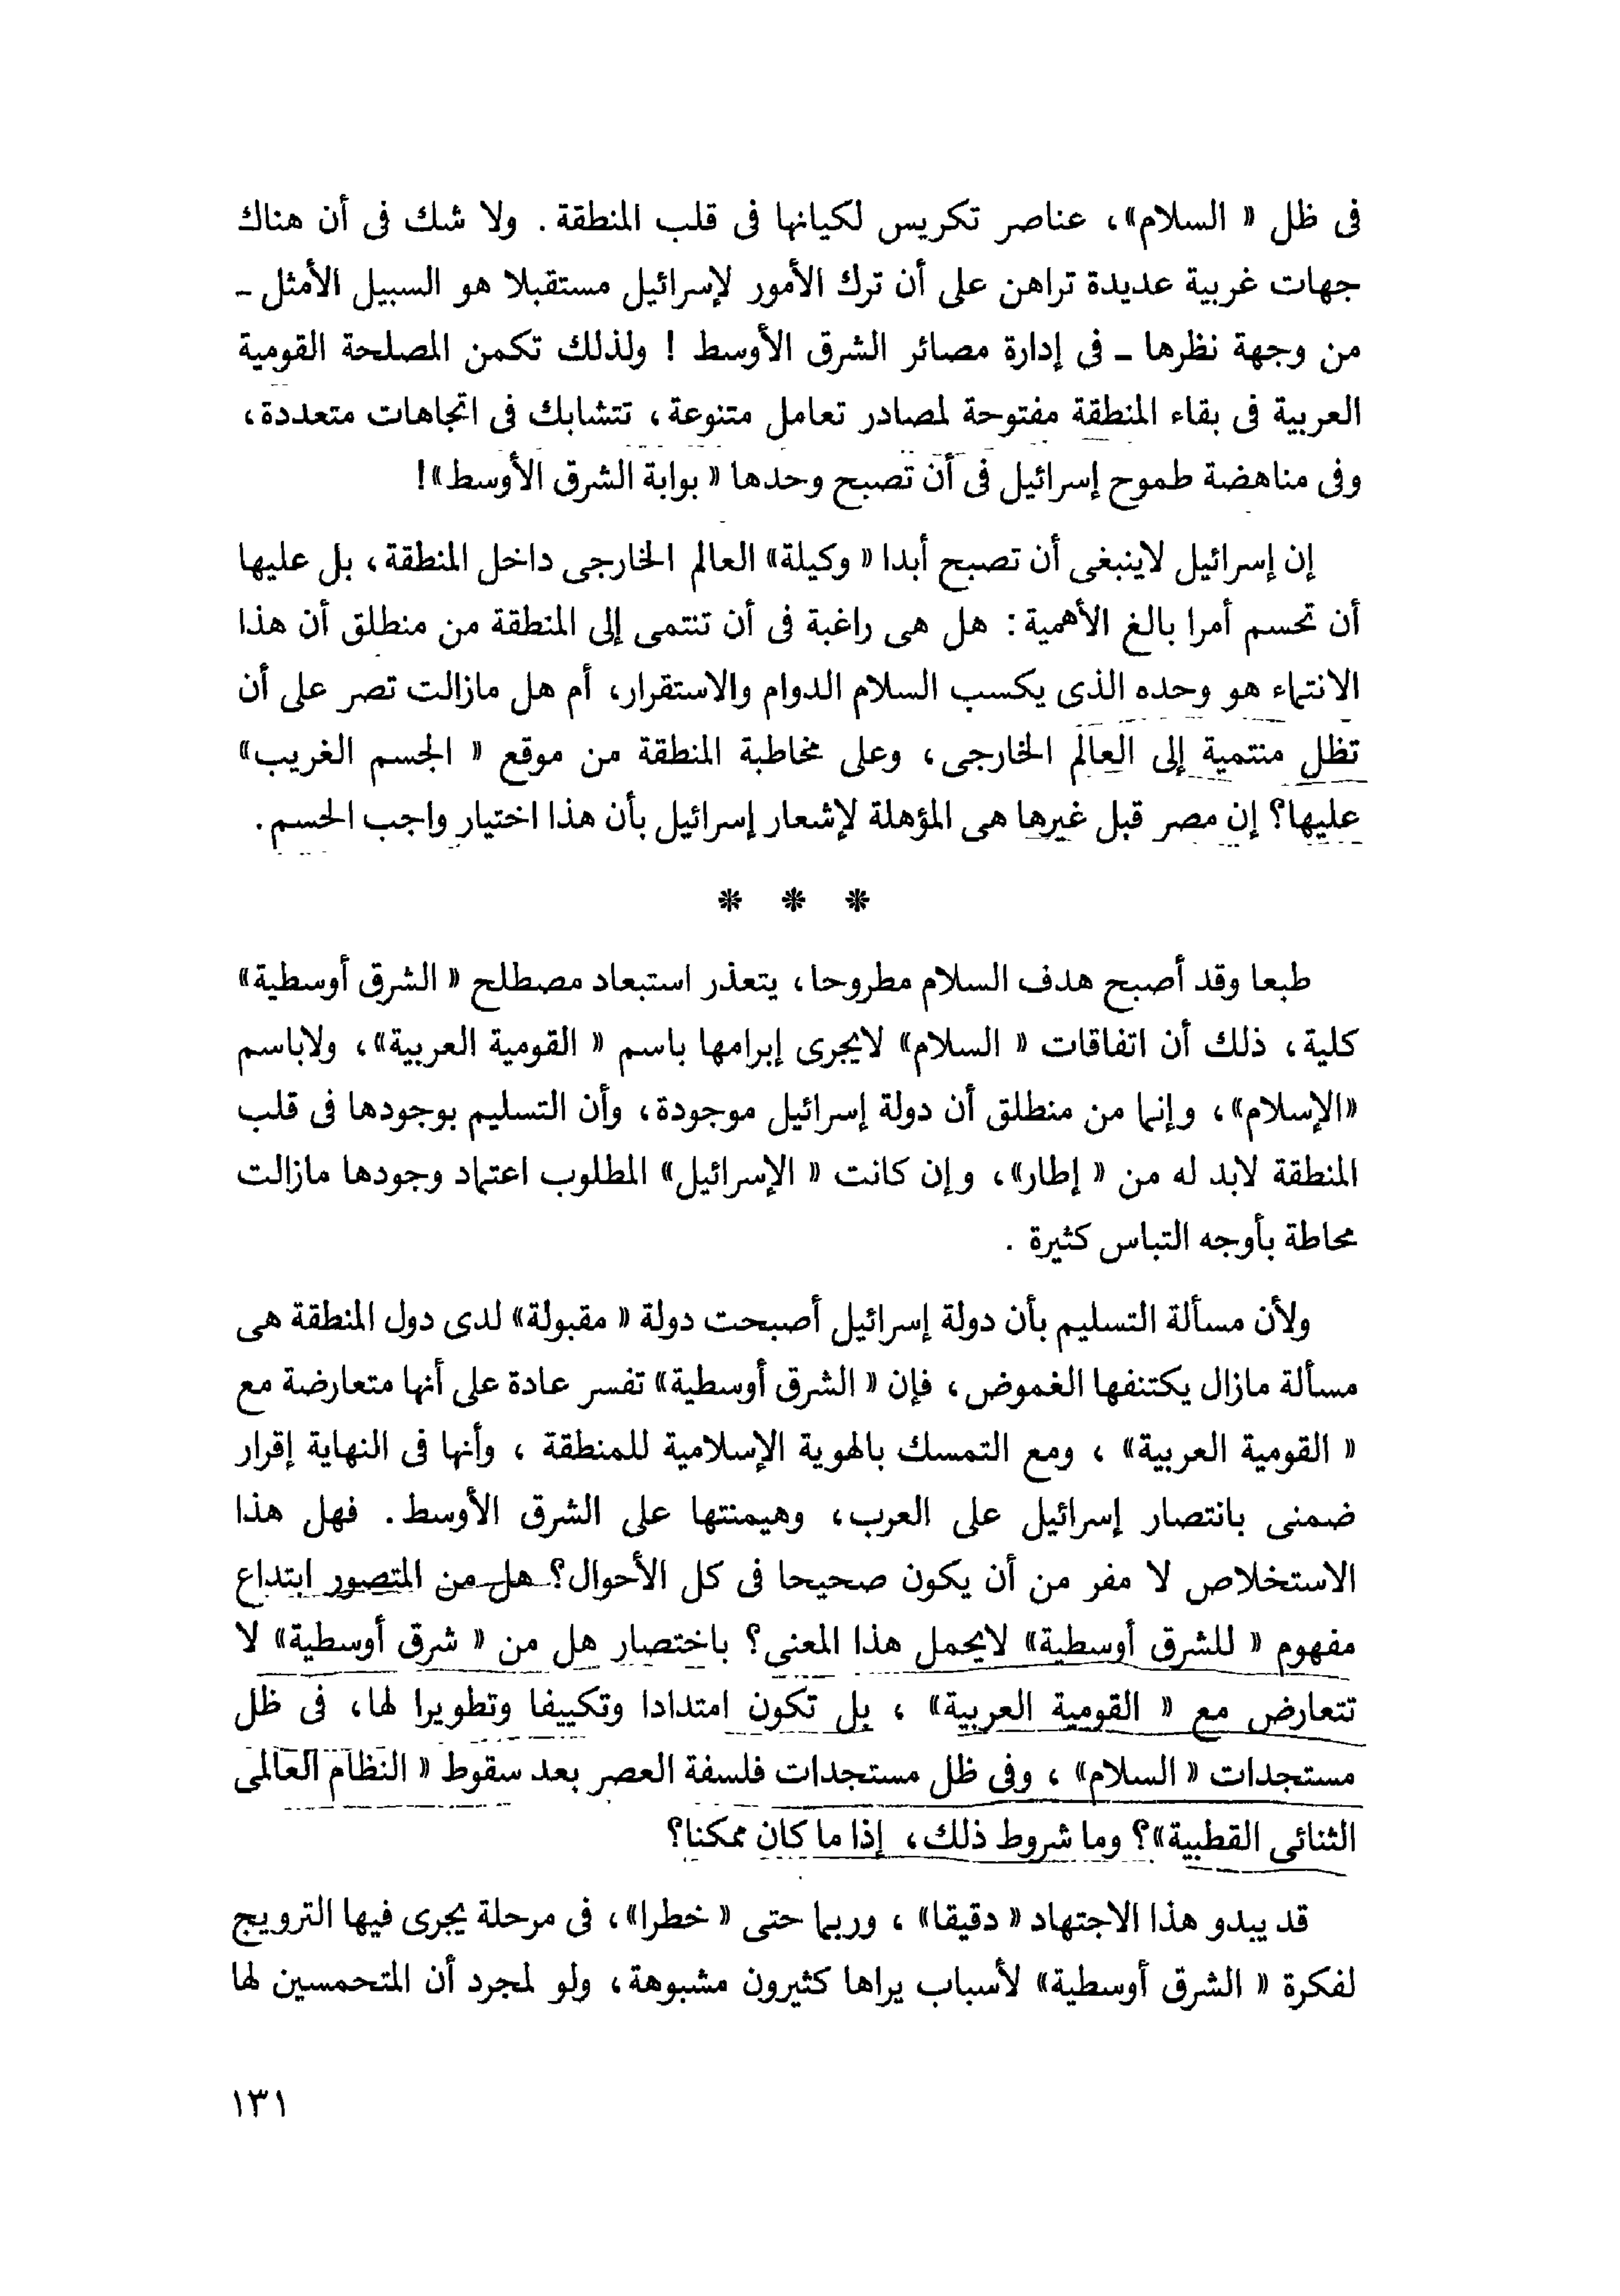 فى ظل « السلام»، عناصر تكريس لكيانها فى قلب المنطقة . ولا شك فى أن هناك
جهات غربية عديدة تراهن على أن ترك الأمور لإسرائيل مستقبلا هو السبيل الأمثل ـ
من وجهة نظرها ـ فى إدارة مصائر الشرق الأوسط ! ولذلك تكمن المصلحة القومية
العربية فى بقاء المنطقة مفتوحة لمصادر تعامل متنوعة، تتشابك فى اتجاهات متعددة،
وفى مناهضة طموح إسرائيل فى أن تصبح وحدها « بوابة الشرق الأوسط»!
إن إسرائيل لاينبغى أن تصبح أبدا « وكيلة» العالم الخارجى داخل المنطقة، بل عليها
أن تحسم أمرا بالغ الأهمية: هل هى راغبة فى أن تنتمى إلى المنطقة من منطلق أن هذا
الانتماء هو وحده الذى يكسب السلام الدوام والاستقرار، أم هل مازالت تصر على أن
تظل منتمية إلى العالم الخارجى، وعلى مخاطبة المنطقة من موقع « الجسم الغريب»
عليها؟ إن مصر قبل غيرها هى المؤهلة لإشعار إسرائيل بأن هذا اختيار واجب الحسم.
* * *
طبعا وقد أصبح هدف السلام مطروحا، يتعذر استبعاد مصطلح « الشرق أوسطية»
كلية، ذلك أن اتفاقات « السلام» لايجرى إبرامها باسم « القومية العربية»، ولاباسم
«الإسلام»، وإنما من منطلق أن دولة إسرائيل موجودة، وأن التسليم بوجودها فى قلب
المنطقة لابد له من « إطار»، وإن كانت « الإسرائيل» المطلوب اعتماد وجودها مازالت
محاطة بأوجه التباس كثيرة .
ولأن مسألة التسليم بأن دولة إسرائيل أصبحت دولة « مقبولة» لدى دول المنطقة هى
مسألة مازال يكتنفها الغموض، فإن « الشرق أوسطية» تفسر عادة على أنها متعارضة مع
« القومية العربية» ، ومع التمسك بالهوية الإسلامية للمنطقة ، وأنها فى النهاية إقرار
ضمنى بانتصار إسرائيل على العرب، وهيمنتها على الشرق الأوسط. فهل هذا
الاستخلاص لا مفر من أن يكون صحيحا فى كل الأحوال؟ هل من المتصور ابتداع
مفهوم « للشرق أوسطية» لايحمل هذا المعنى؟ باختصار هل من « شرق أوسطية» لا
تتعارض مع « القومية العربية» ، بل تكون امتدادا وتكييفا وتطويرا لها، فى ظل
مستجدات « السلام» ، وفى ظل مستجدات فلسفة العصر بعد سقوط « النظام العالمى
الثنائى القطبية»؟ وما شروط ذلك، إذا ما كان ممكنا؟
قد يبدو هذا الاجتهاد « دقيقا» ، وربما حتى « خطرا»، فى مرحلة يجرى فيها الترويج
لفكرة « الشرق أوسطية» لأسباب يراها كثيرون مشبوهة، ولو لمجرد أن المتحمسين لها
١٣١